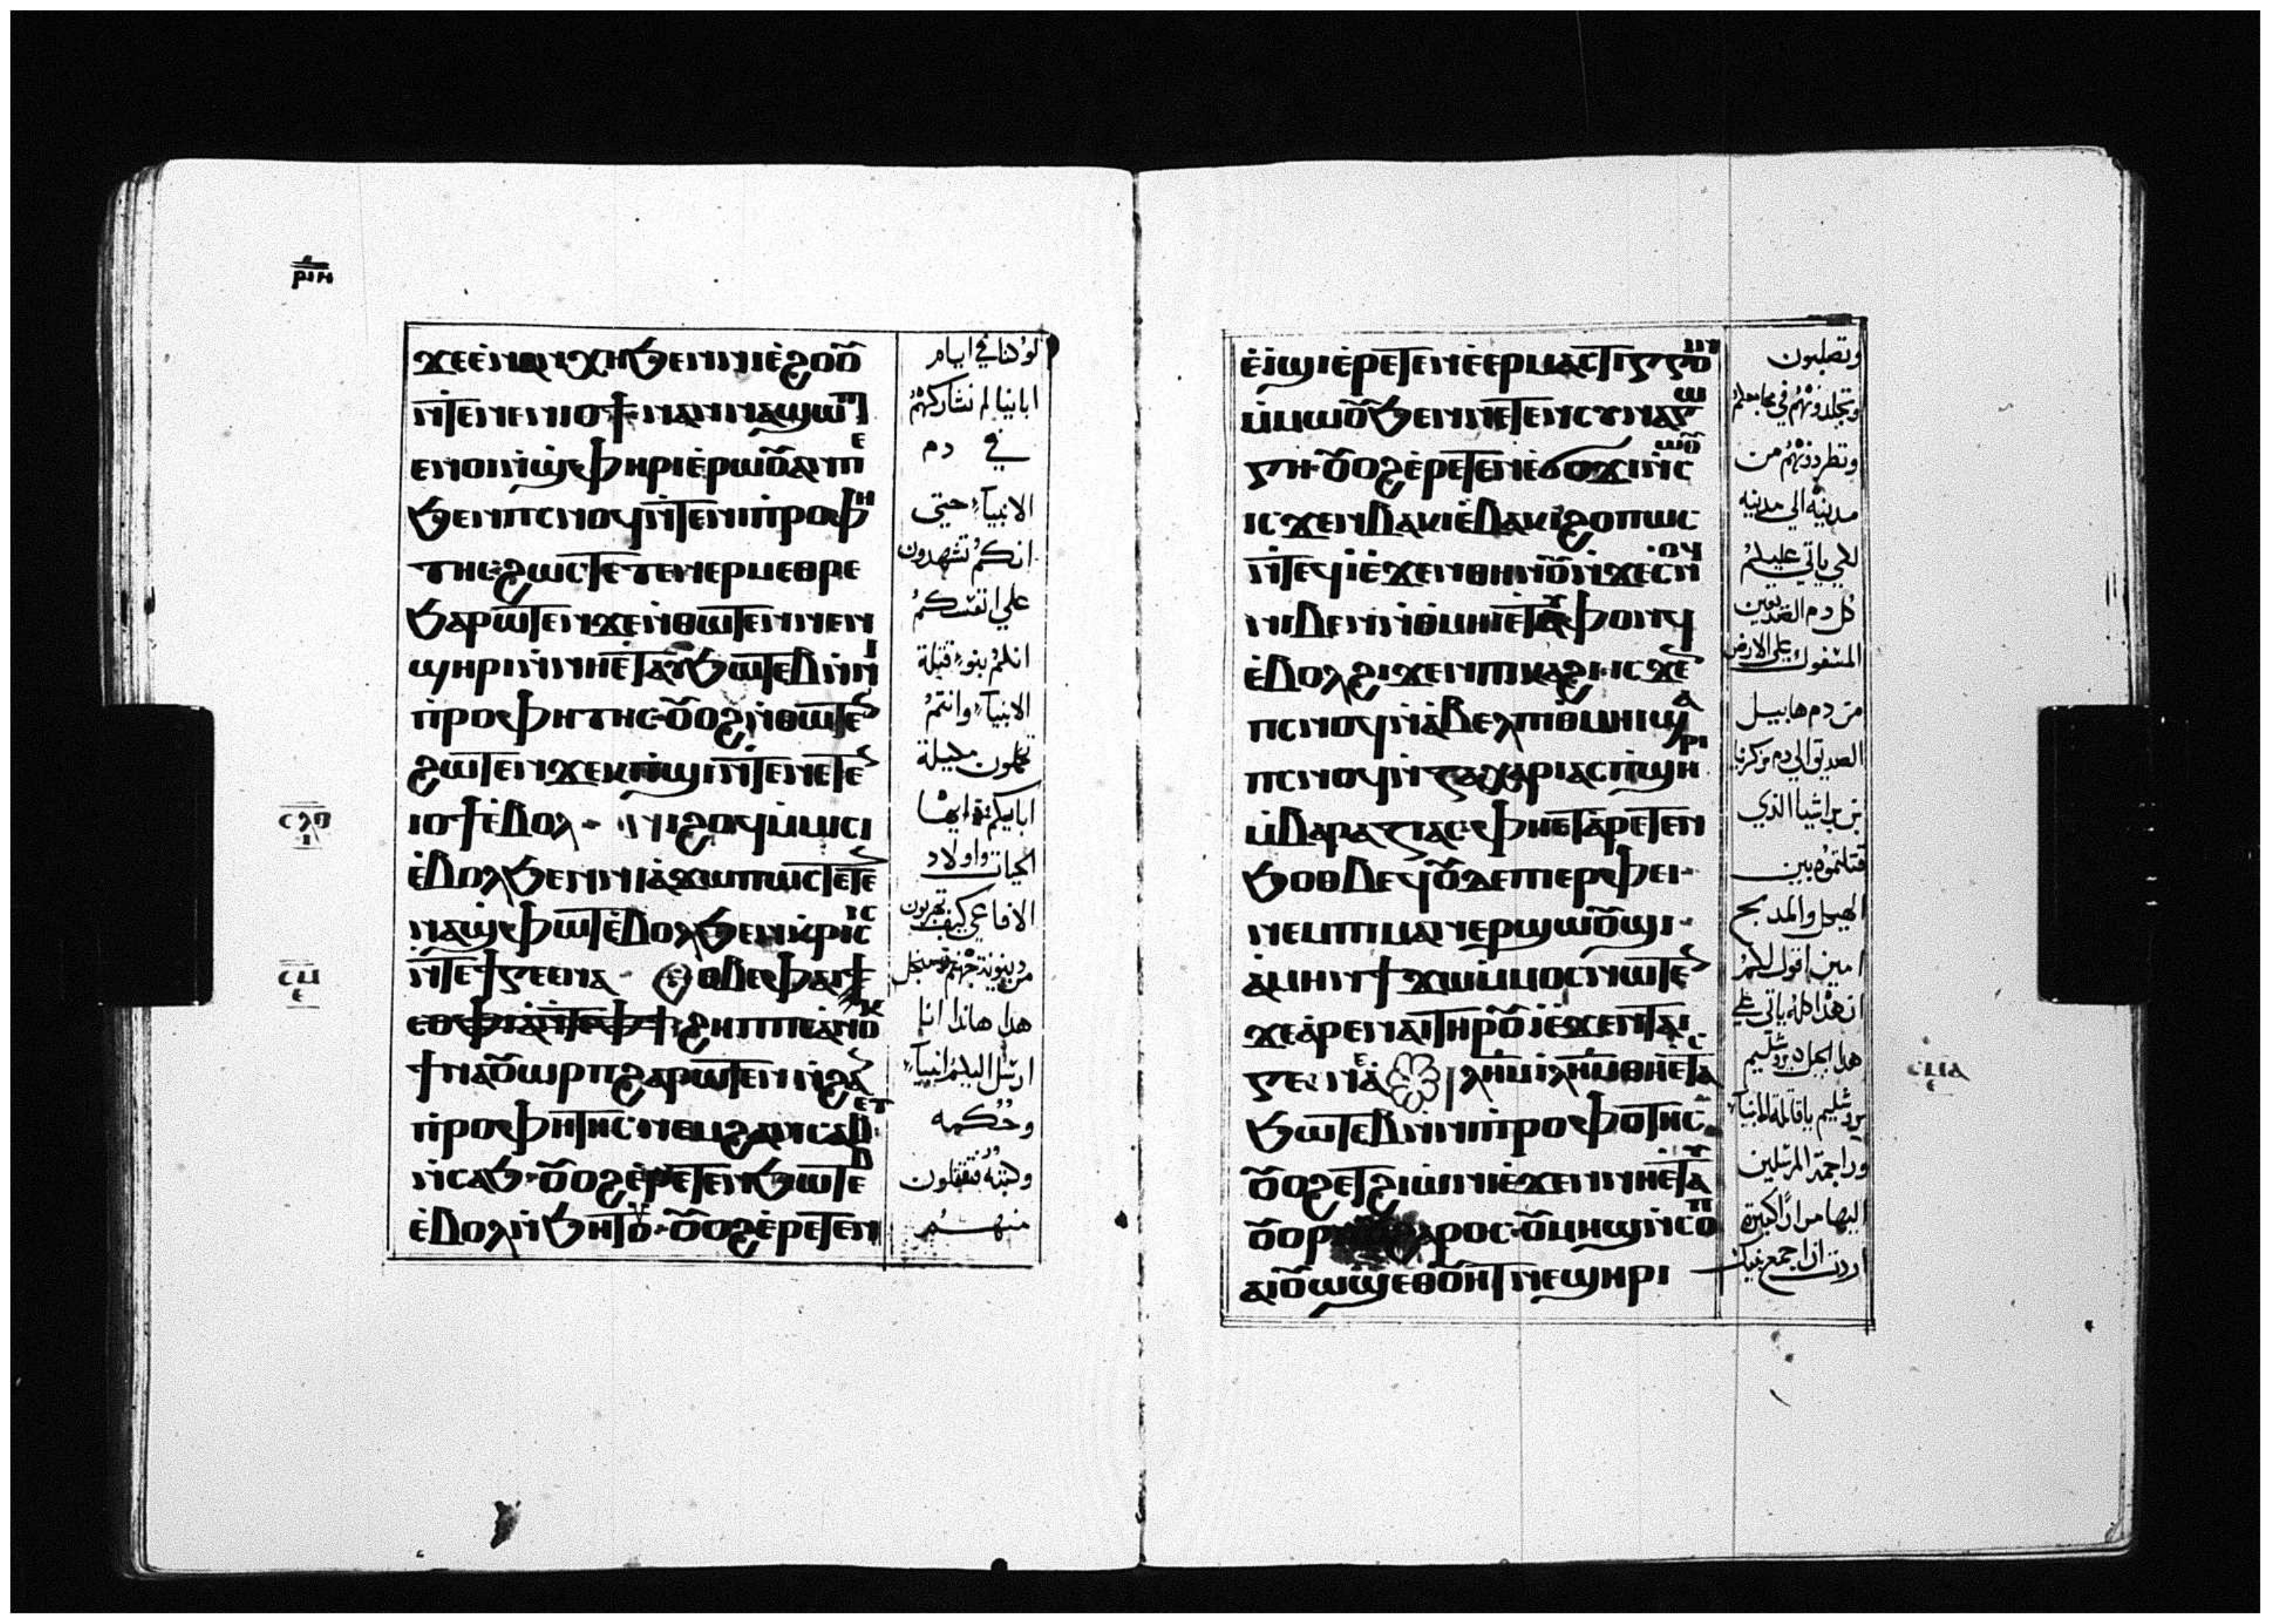 ⲣⲓⲏ
ϫⲉⲉⲛⲁⲛⲭⲏϧⲉⲛⲛⲓⲉϩⲟⲟⲩ
ⲛⲧⲉⲛⲉⲛⲓⲟϯⲛⲁⲛⲛⲁϣⲱⲡⲓ
ⲉⲛⲟⲓⲛϣⲫⲏⲣⲓⲉⲣⲱⲟⲩⲁⲛⲡⲉ
ϧⲉⲛⲡⲥⲛⲟϥⲛⲧⲉⲛⲓⲡⲣⲟⲫⲏ
ⲧⲏⲥ ϩⲱⲥⲧⲉⲧⲉⲧⲉⲛⲉⲣⲙⲉⲑⲣⲉ
ϧⲁⲣⲱⲧⲉⲛϫⲉⲛⲑⲱⲧⲉⲛⲛⲉⲛ
ϣⲏⲣⲓⲛⲛⲏⲉⲧⲁⲩϧⲱⲧⲉⲃⲛⲛⲓ
ⲡⲣⲟⲫⲏⲧⲏⲥ ⲟⲩⲟϩⲛⲑⲱⲧⲉⲛ
ϩⲱⲧⲉⲛϫⲉⲕⲡϣⲓⲛⲧⲉⲛⲉⲧⲉⲛ
ⲓⲟϯⲉⲃⲟⲗ ⲛⲓϩⲟϥⲙⲙⲓⲥⲓ
ⲉⲃⲟⲗϧⲉⲛⲛⲓⲁϫⲱⲡⲱⲥⲧⲉⲧⲉⲛ
ⲛⲁϣⲫⲱⲧⲉⲃⲟⲗϧⲉⲛⲕⲣⲓⲥⲓⲥ
ⲛⲧⲉϯⲅⲉⲉⲛⲛⲁ ⲉⲑⲃⲉⲫⲁⲓ
ϩⲏⲡⲡⲉⲁⲛⲟⲕ
ϯⲛⲁⲟⲩⲱⲣⲡϩⲁⲣⲱⲧⲉⲛⲛϩⲁⲛ
ⲡⲣⲟⲫⲏⲧⲏⲥ ⲛⲉⲙϩⲁⲛⲥⲁⲃⲉⲩ
ⲛⲥⲁϧ ⲟⲩⲟϩⲉⲣⲉⲧⲉⲛϧⲱⲧⲉⲃ
ⲉⲃⲟⲗⲛϧⲏⲧⲟⲩ ⲟⲩⲟϩⲉⲣⲉⲧⲉⲛ
لو كنا في ايام
ابائنا لم نشاركهم
في دم
الانبيآء حتي
انكم تشهدون
علي انفسكم
انكم بنو قتلة
الانبيآء وانتم
ابايكم ايها
الحيات واولاد
الافاعي كيف تهربون
من دينونة جهنم
هذا هاندا انا
ارسل اليكم انبيآء
وحكمه
وكتبه فتقتلون
منهم
ⲥⲗⲑ
ⲥⲙ
ⲉ
ⲉⲓϣⲓⲉⲣⲉⲧⲉⲛⲉⲉⲣⲙⲁⲥⲧⲓⲅⲅⲟⲓⲛ
ⲙⲙⲱⲟⲩϧⲉⲛⲛⲉⲧⲉⲛⲥⲩⲛⲁⲅⲱ
ⲅⲏ ⲟⲩⲟϩⲉⲣⲉⲧⲉⲛⲉϭⲟϫⲓⲛⲥⲱⲟⲩ
ⲓⲥϫⲉⲛⲃⲁⲕⲓⲉⲃⲁⲕⲓ ϩⲟⲡⲱⲥ
ⲛⲧⲉϥⲓⲉϫⲉⲛⲑⲏⲛⲟⲩⲛϫⲉⲥⲛⲟϥ
ⲛⲓⲃⲉⲛⲛⲑⲙⲏⲓⲉⲧⲁⲩⲫⲟⲛϥ
ⲉⲃⲟⲗϩⲓϫⲉⲛⲡⲓⲕⲁϩⲓ ⲓⲥϫⲉⲛ
ⲡⲥⲛⲟϥⲛⲁⲃⲉⲗⲡⲓⲑⲙⲏⲓϣⲁ
ⲡⲥⲛⲟϥⲛⲍⲁⲭⲁⲣⲓⲁⲥⲡϣⲏⲣⲓ
ⲙⲃⲁⲣⲁⲭⲓⲁⲥ ⲫⲏⲉⲧⲁⲣⲉⲧⲉⲛ
ϧⲟⲑⲃⲉϥⲟⲩⲧⲉⲡⲓⲉⲣⲫⲉⲓ
ⲛⲉⲙⲡⲓⲙⲁⲛⲉⲣϣⲱⲟⲩϣⲓ
ⲁⲙⲏⲛϯϫⲱⲙⲙⲟⲥⲛⲱⲧⲉⲛ
ϫⲉⲁⲣⲉⲛⲁⲓⲧⲏⲣⲟⲩⲓⲉϫⲉⲛⲧⲁⲓ
ⲅⲉⲛⲉⲁ ⲓⲗⲏⲙⲓⲗⲏⲙⲑⲏⲉⲧⲁⲥ
ϧⲱⲧⲉⲃⲛⲛⲓⲡⲣⲟⲫⲟⲧⲏⲥ
ⲟⲩⲟϩⲉⲧϩⲓⲱⲛⲓⲉϫⲉⲛⲛⲏⲉⲧⲁⲩ
ⲟⲩⲟⲣ ϩⲁⲣⲟⲥ ⲟⲩⲙⲏϣⲛⲥⲟⲡ
ⲁⲓⲟⲩⲱϣⲉⲑⲟⲩⲏⲧⲛⲉϣⲏⲣⲓ
وتصلبون
وتجلدونهم في مجامعكم
وتطردونهم من
مدينة الي مدينه
لكي ياتي عليكم
كل دم الصديقين
المسفوك علي الارض
من دم هابيل
الصديق الي دم زكريا
بن براشيا الذي
قتلتموه بين
الهيكل والمدبح
امين اقول لكم
ان هذا كله ياتي علي
هذا الجيل يروشليم
يروشليم ياقاتلة الانبيآء
وراجمة المرسلين
اليها مرارًا كثيرة
اردت ان اجمع بنيك
ⲥⲙⲁ
ⲉ